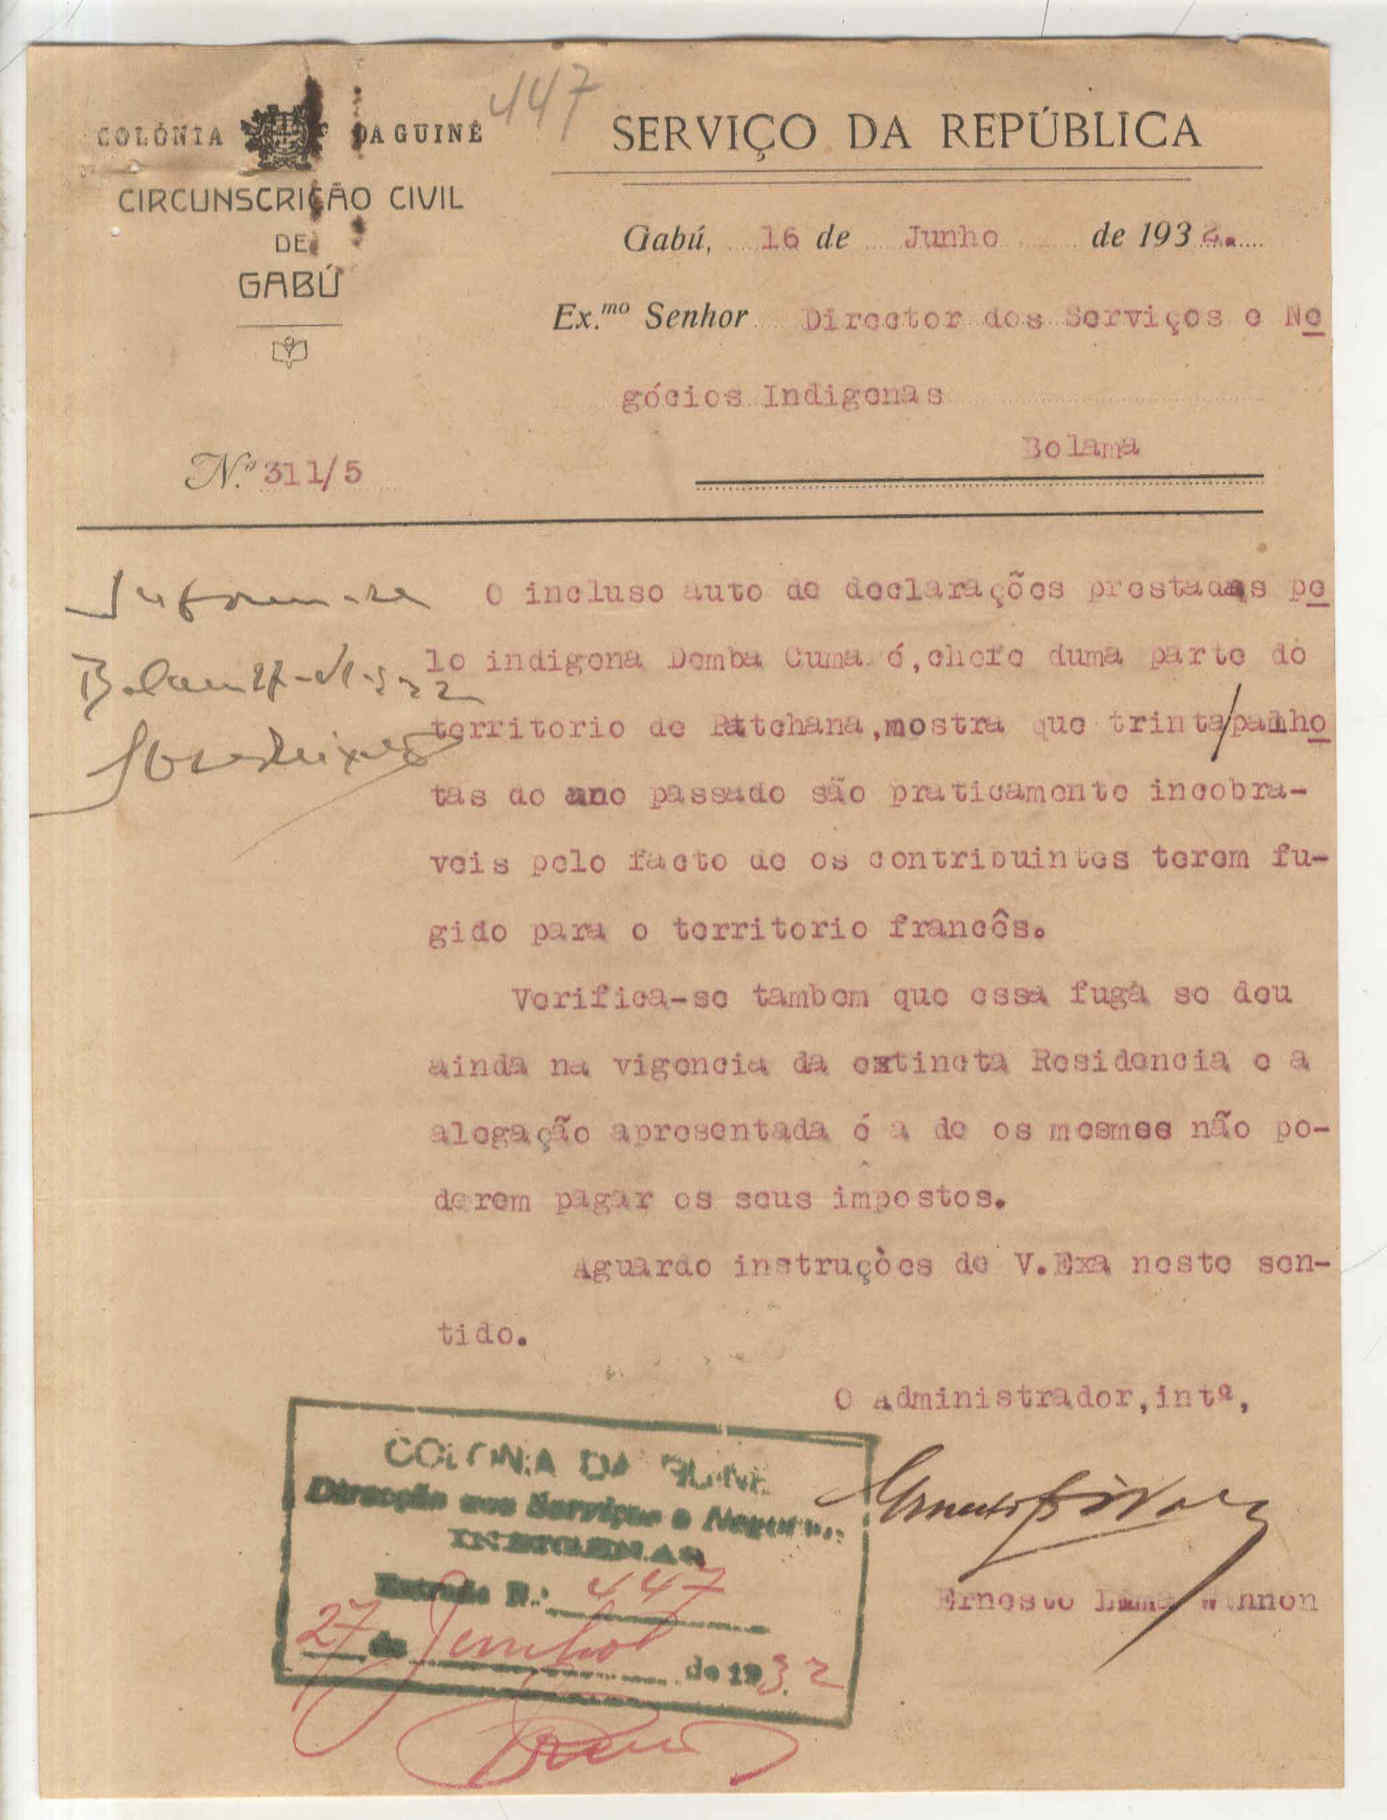 447
COLÓNIA DA GUINÉ
CIRCUNSCRIÇÃO CIVIL
DE
GABÚ
SERVIÇO DA REPÚBLICA
Gabú, 16 de Junho de 1932.
Ex.mo Senhor Director dos Serviços e Ne
gócios Indigenas
Bolama
N.º 311/5
O incluso auto de declarações prestadas pe
lo indigena Demba Cuma é, chefe duma parte do
territorio de Patchana, mostra que trinta/palho
tas do ano passado são praticamente incobra-
veis pelo facto de os contribuintes terem fu-
gido para o territorio francês.
Verifica-se tambem que essa fuga se deu
ainda na vigencia da extincta Residencia e a
alegação apresentada é a de os mesmos não po-
derem pagar os seus impostos.
Aguardo instruçòes de V.Exa neste sen-
tido.
O Administrador, intº,
Ernesto Lima
COLONIA DA GUINÉ
Direcção dos Serviços e Negocios
INDIGENAS
Entrada N.º 447
27 de Junho de 1932